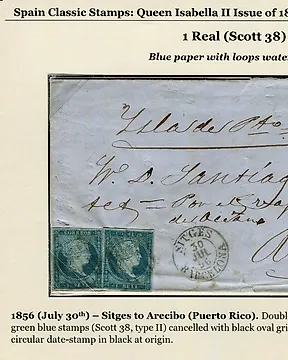 Spain Classic Stamps: Queen Isabella II Issue of 18
1 Real (Scott 38)
Blue paper with loops water
Isla de Pto
W. D. Santiag
SITGES
30
JUL
BARCELONA
1856 (July 30th) – Sitges to Arecibo (Puerto Rico). Doubl
green blue stamps (Scott 38, type II) cancelled with black oval gri
circular date-stamp in black at origin.